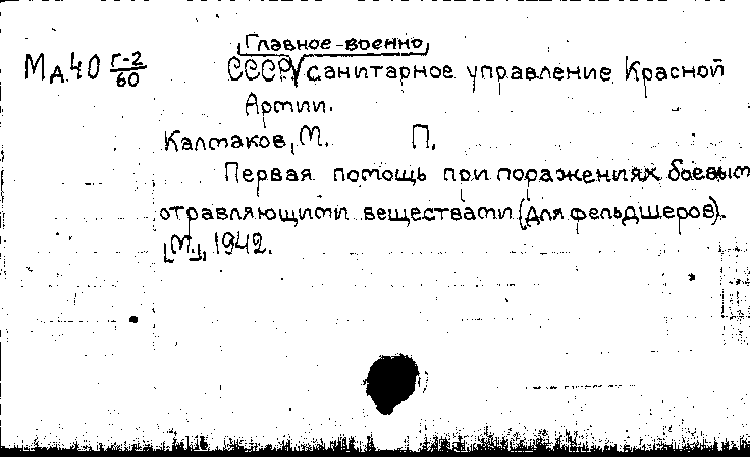 Главное-военно
Мд.40 Г-2/60 СССР√санитарное управление Красной
Армии.
Калмаков, М. П.
Первая помощь при поражениях боевым
отравляющими веществами (для фельдшеров).
[М.], 1942.